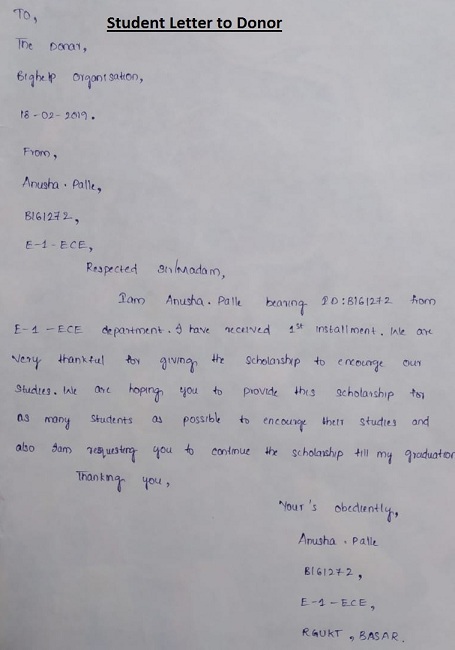 To,
Student Letter to Donor
The Donar,
Bighelp Organisation,
18-02-2019.
From,
Anusha. Palle,
B161272,
E-1-ECE,
Respected sir/Madam,
Iam Anusha. Palle bearing ID:B161272 from
E-1-ECE department. I have received 1st installment. We are
very thankful for giving the scholarship to encourge our
studies. We are hoping you to provide this scholarship for
as many students as possible to encourge their studies and
also Iam requesting you to continue the scholarship till my graduation
Thanking you,
Your's obediently,
Anusha. Palle
B161272,
E-1-ECE,
RGUKT, BASAR.